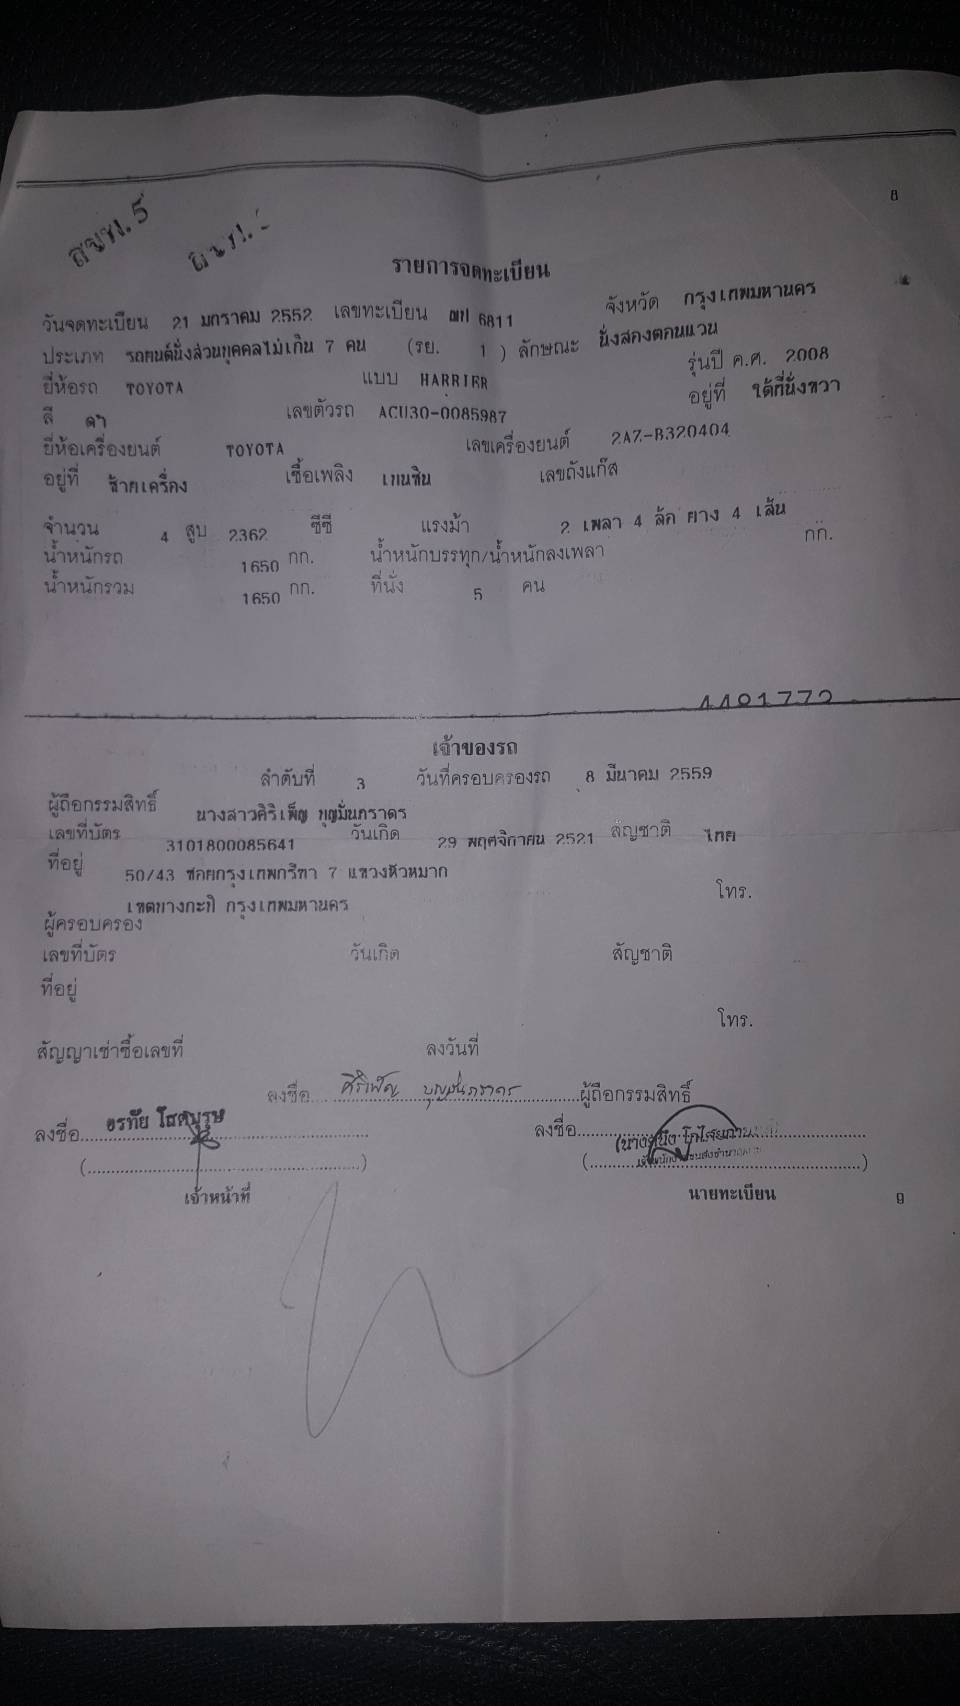 8
สจพ. 5
รายการจดทะเบียน
วันจดทะเบียน 21 มกราคม 2552 เลขทะเบียน 6811 จังหวัด กรุงเทพมหานคร
ประเภท รถยนต์นั่งส่วนบุคคลไม่เกิน 7 คน (รย. 1 ) ลักษณะ นั่งสองตอนแวน
ยี่ห้อรถ TOYOTA แบบ HARRIER รุ่นปี ค.ศ. 2008
สี ดำ เลขตัวรถ ACU30-0085987 อยู่ที่ ใต้ที่นั่งขวา
ยี่ห้อเครื่องยนต์ TOYOTA เลขเครื่องยนต์ 2AZ-B320404
อยู่ที่ ซ้ายเครื่อง เชื้อเพลิง เบนซิน เลขถังแก๊ส
จำนวน 4 สูบ 2362 ซีซี แรงม้า 2 เพลา 4 ล้อ ยาง 4 เส้น
น้ำหนักรถ 1650 กก. น้ำหนักบรรทุก/น้ำหนักลงเพลา กก.
น้ำหนักรวม 1650 กก. ที่นั่ง 5 คน
4401772
เจ้าของรถ
ลำดับที่ 3 วันที่ครอบครองรถ 8 มีนาคม 2559
ผู้ถือกรรมสิทธิ์ นางสาวศิริเพ็ญ บุญมั่นภราดร
เลขที่บัตร 3101800085641 วันเกิด 29 พฤศจิกายน 2521 สัญชาติ ไทย
ที่อยู่ 50/43 ซอยกรุงเทพกรีฑา 7 แขวงหัวหมาก
เขตบางกะปิ กรุงเทพมหานคร โทร.
ผู้ครอบครอง
เลขที่บัตร วันเกิด สัญชาติ
ที่อยู่
โทร.
สัญญาเช่าซื้อเลขที่ ลงวันที่
ลงชื่อ ศิริเพ็ญ บุญมั่นภราดร ผู้ถือกรรมสิทธิ์
ลงชื่อ อรทัย โสตบุรุษ ลงชื่อ
(....................) (....................)
เจ้าหน้าที่ นายทะเบียน
9